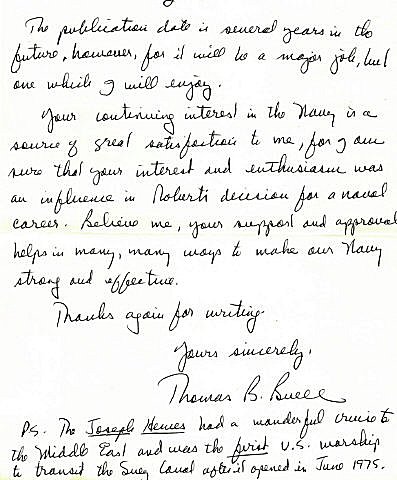 The publication date is several years in the
future, however, for it will be a major job, but
one which I will enjoy.
Your continuing interest in the Navy is a
source of great satisfaction to me, for I am
sure that your interest and enthusiasm was
an influence in Robert's decision for a naval
career. Believe me, your support and approval
helps in many, many ways to make our Navy
strong and effective.
Thanks again for writing.
Yours sincerely,
Thomas B. Buell
PS. The Joseph Hewes had a wonderful cruise to
the Middle East and was the first U.S. warship
to transit the Suez Canal after it opened in June 1975.